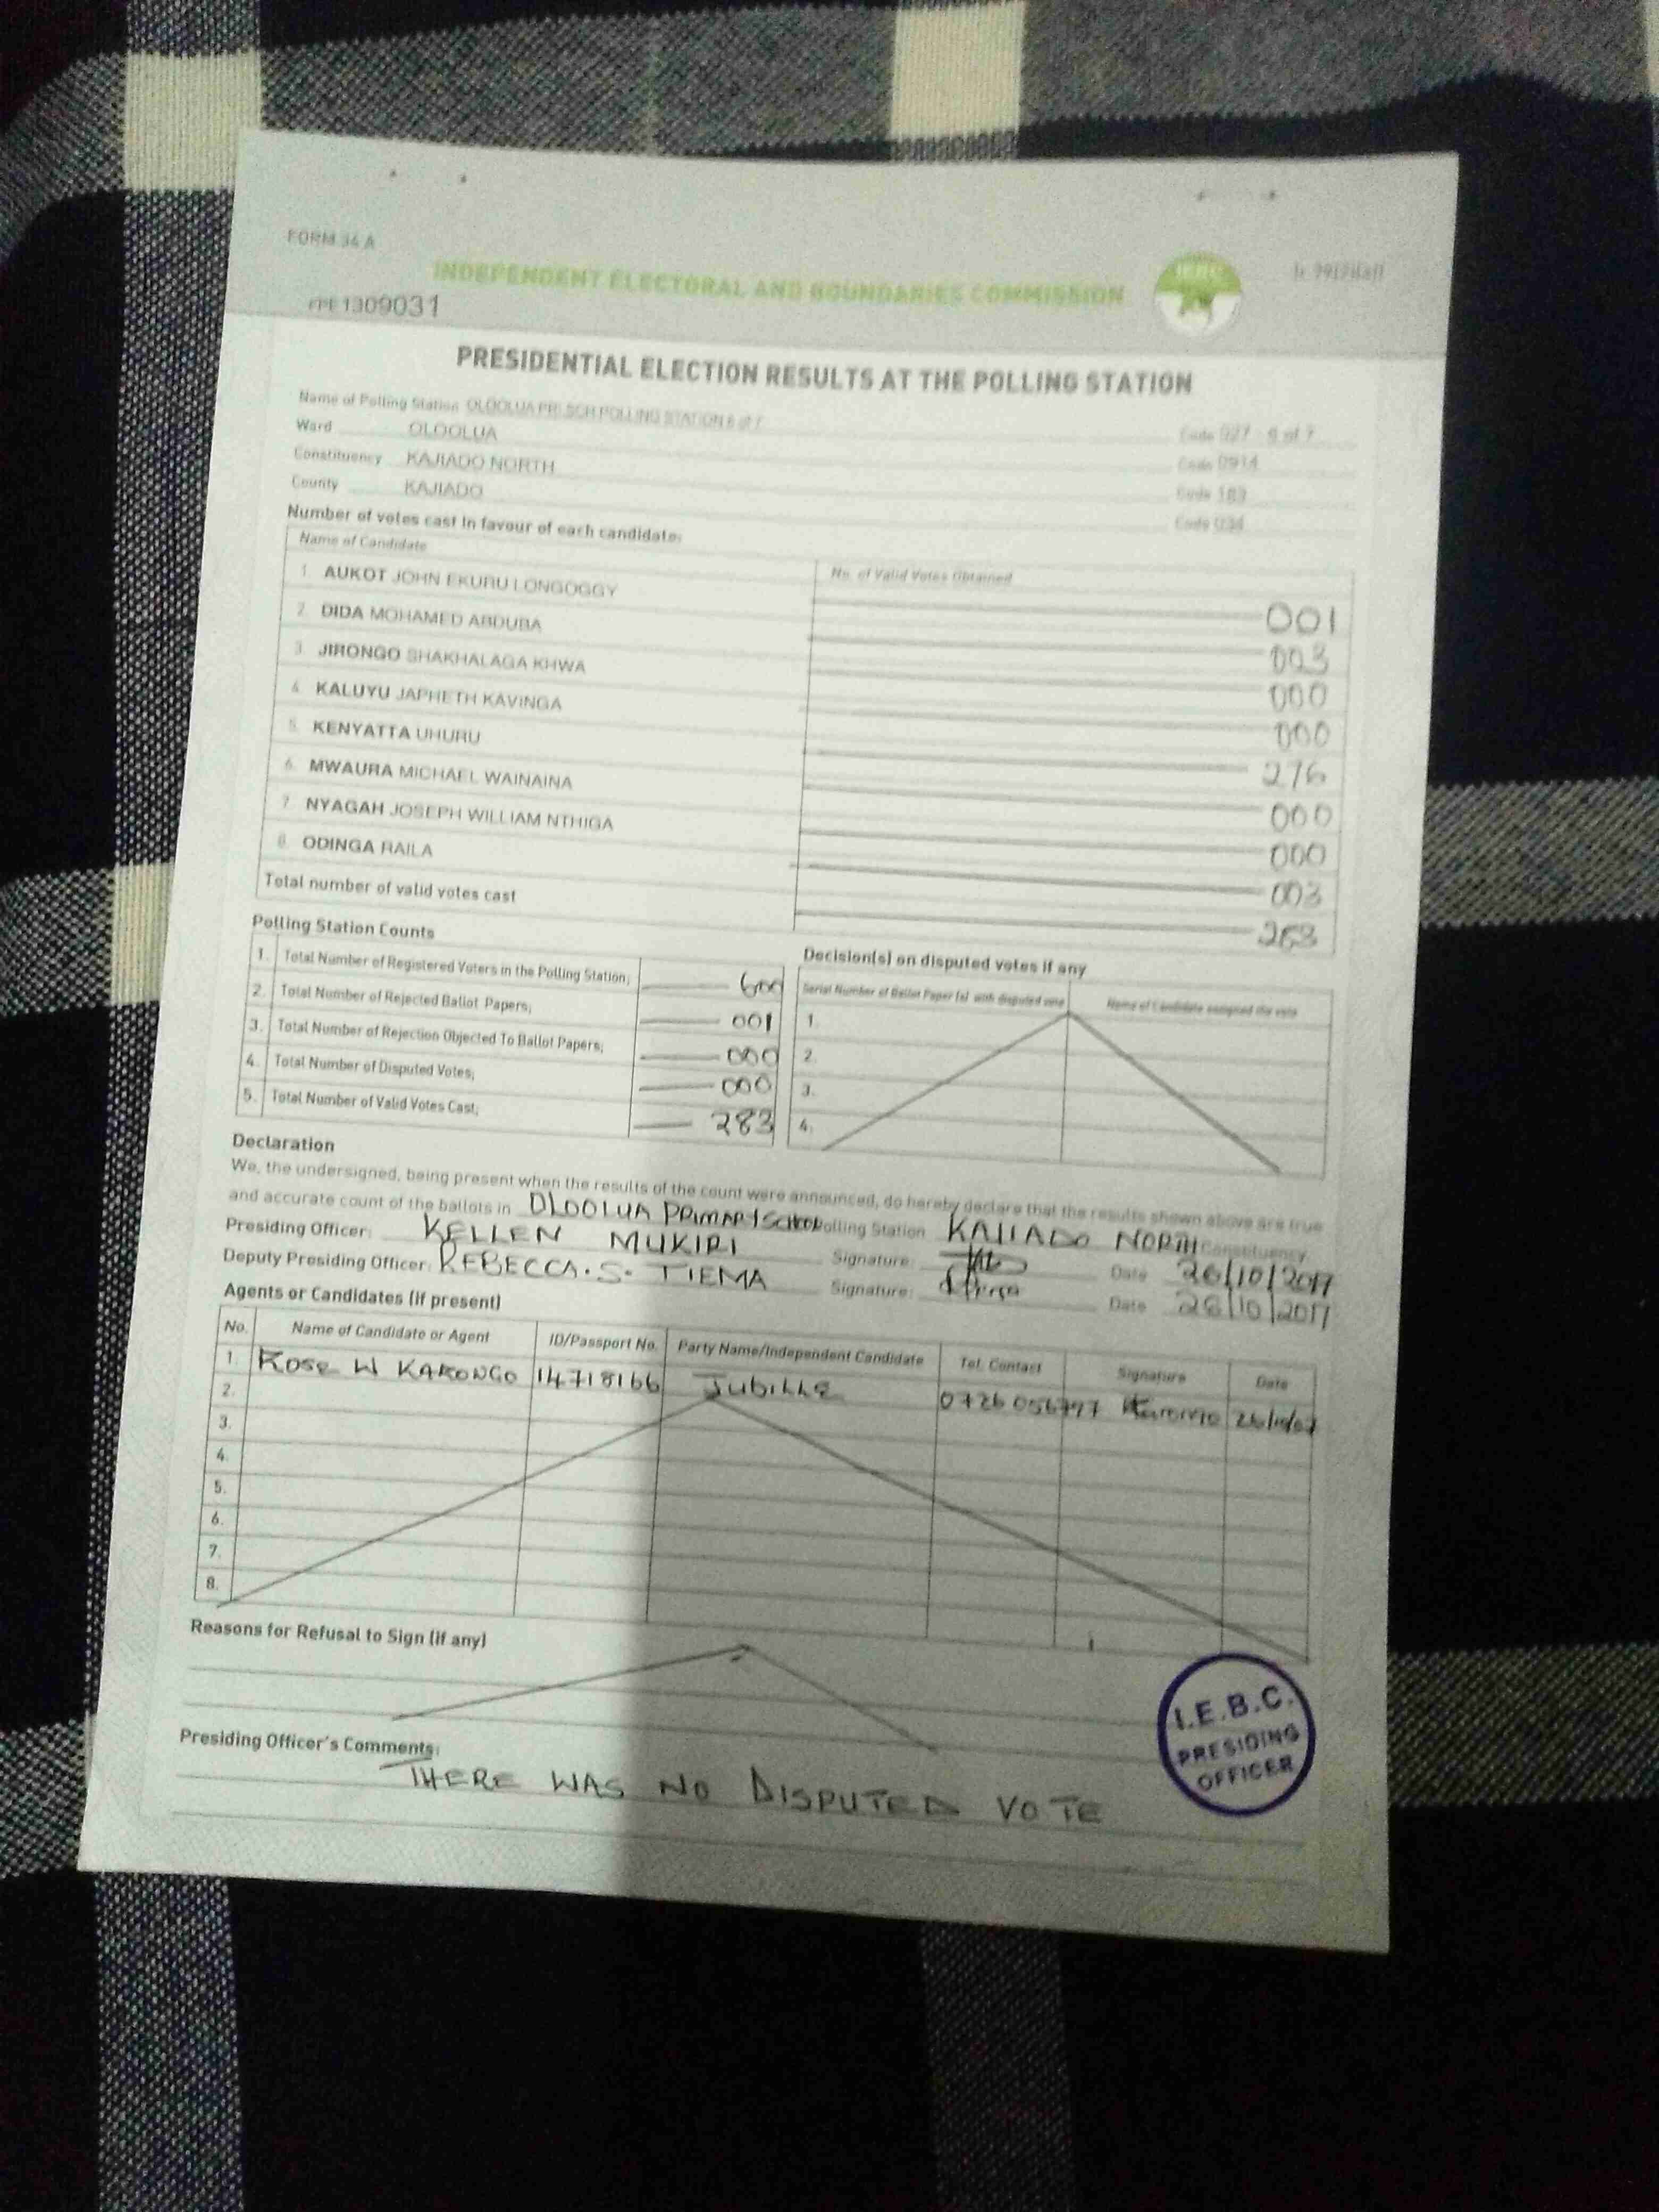 FORM 34 A
INDEPENDENT ELECTORAL AND BOUNDARIES COMMISSION
1309031
PRESIDENTIAL ELECTION RESULTS AT THE POLLING STATION
Name of Polling Station OLOOLUA PRI SCH POLLING STATION 6 of 7
Code 027 - 6 of 7
Ward OLOOLUA Code 0914
Constituency KAJIADO NORTH Code 183
County KAJIADO Code 034
Number of votes cast in favour of each candidate:
Name of Candidate No. of Valid Votes Obtained
1. AUKOT JOHN EKURU LONGOGGY 001
2. DIDA MOHAMED ABDUBA 003
3. JIRONGO SHAKHALAGA KHWA 000
4. KALUYU JAPHETH KAVINGA 000
5. KENYATTA UHURU 276
6. MWAURA MICHAEL WAINAINA 000
7. NYAGAH JOSEPH WILLIAM NTHIGA 000
8. ODINGA RAILA 003
Total number of valid votes cast 283
Polling Station Counts
1. Total Number of Registered Voters in the Polling Station; 600
2. Total Number of Rejected Ballot Papers; 001
3. Total Number of Rejection Objected To Ballot Papers; 000
4. Total Number of Disputed Votes; 000
5. Total Number of Valid Votes Cast; 283
Decision(s) on disputed votes if any
Serial Number of Ballot Paper (s) with disputed vote Name of Candidate assigned the vote
1.
2.
3.
4.
Declaration
We, the undersigned, being present when the results of the count were announced, do hereby declare that the results shown above are true
and accurate count of the ballots in OLOOLUA PRIMARY SCHOOL Polling Station KAJIADO NORTH Constituency.
Presiding Officer: KELLEN MUKIRI Signature: Date 26/10/2017
Deputy Presiding Officer: REBECCA . S . TIEMA Signature: Date 26/10/2017
Agents or Candidates (if present)
No. Name of Candidate or Agent ID/Passport No. Party Name/Independent Candidate Tel. Contact Signature Date
1. Rose W KARONGO 14718166 Jubilee 0726 056797
2.
3.
4.
5.
6.
7.
8.
Reasons for Refusal to Sign (if any)
Presiding Officer's Comments:
THERE WAS NO DISPUTED VOTE
I.E.B.C.
PRESIDING
OFFICER